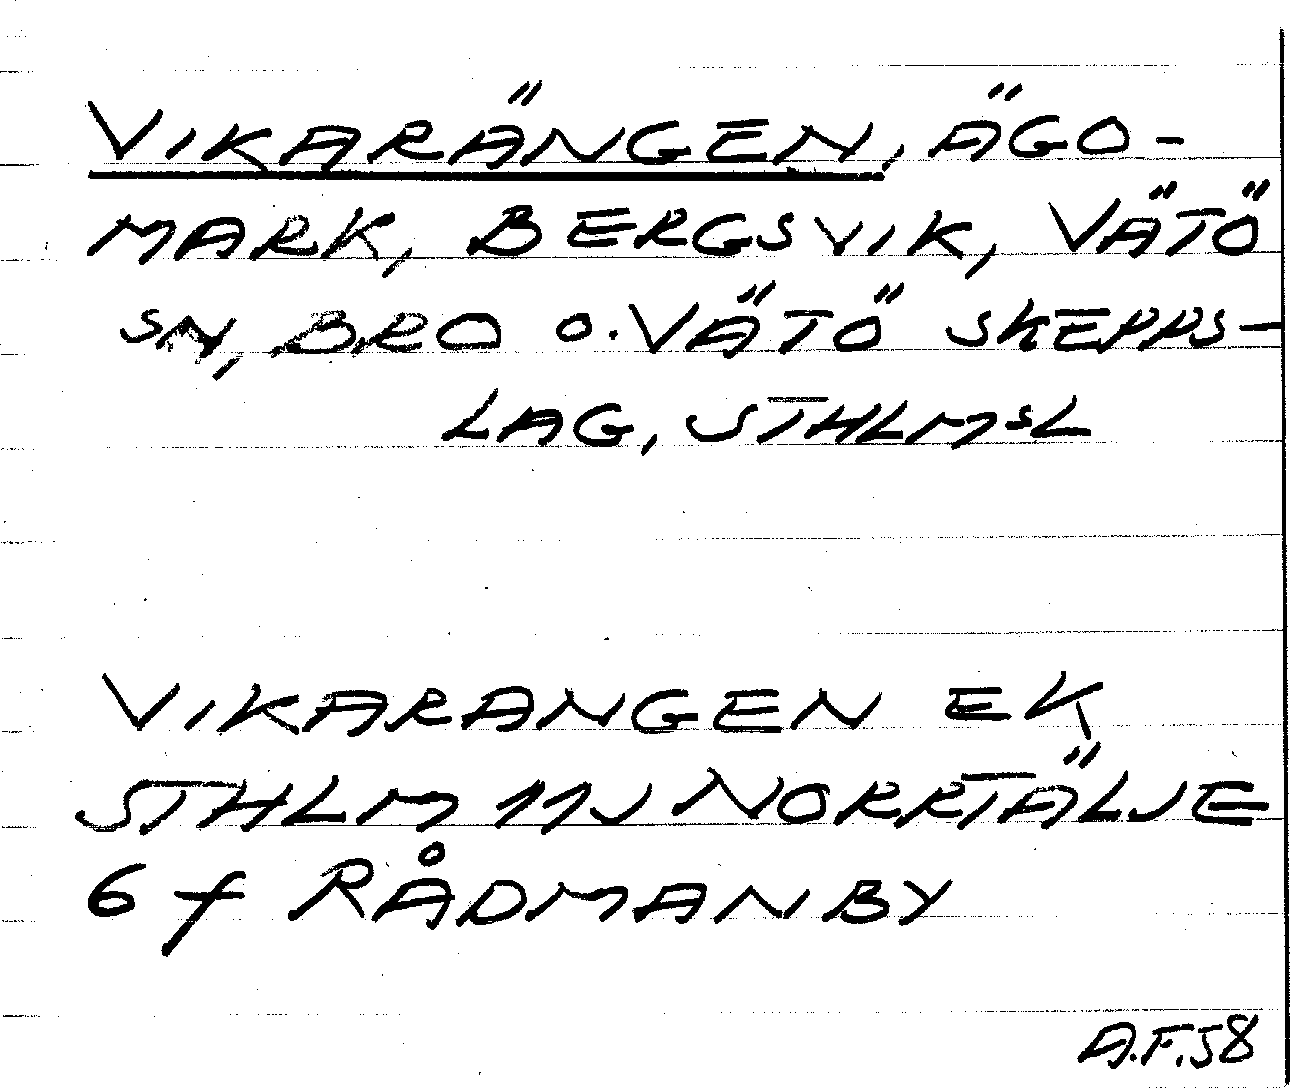 VIKARÄNGEN, ÄGO-
MARK, BERGSVIK, VÄTÖ
SN, BRO O. VÄTÖ SKEPPS-
LAG, STHLMSL
VIKARANGEN EK
STHLM 11J NORRTÄLJE
6 f RÅDMANBY
A.F.58